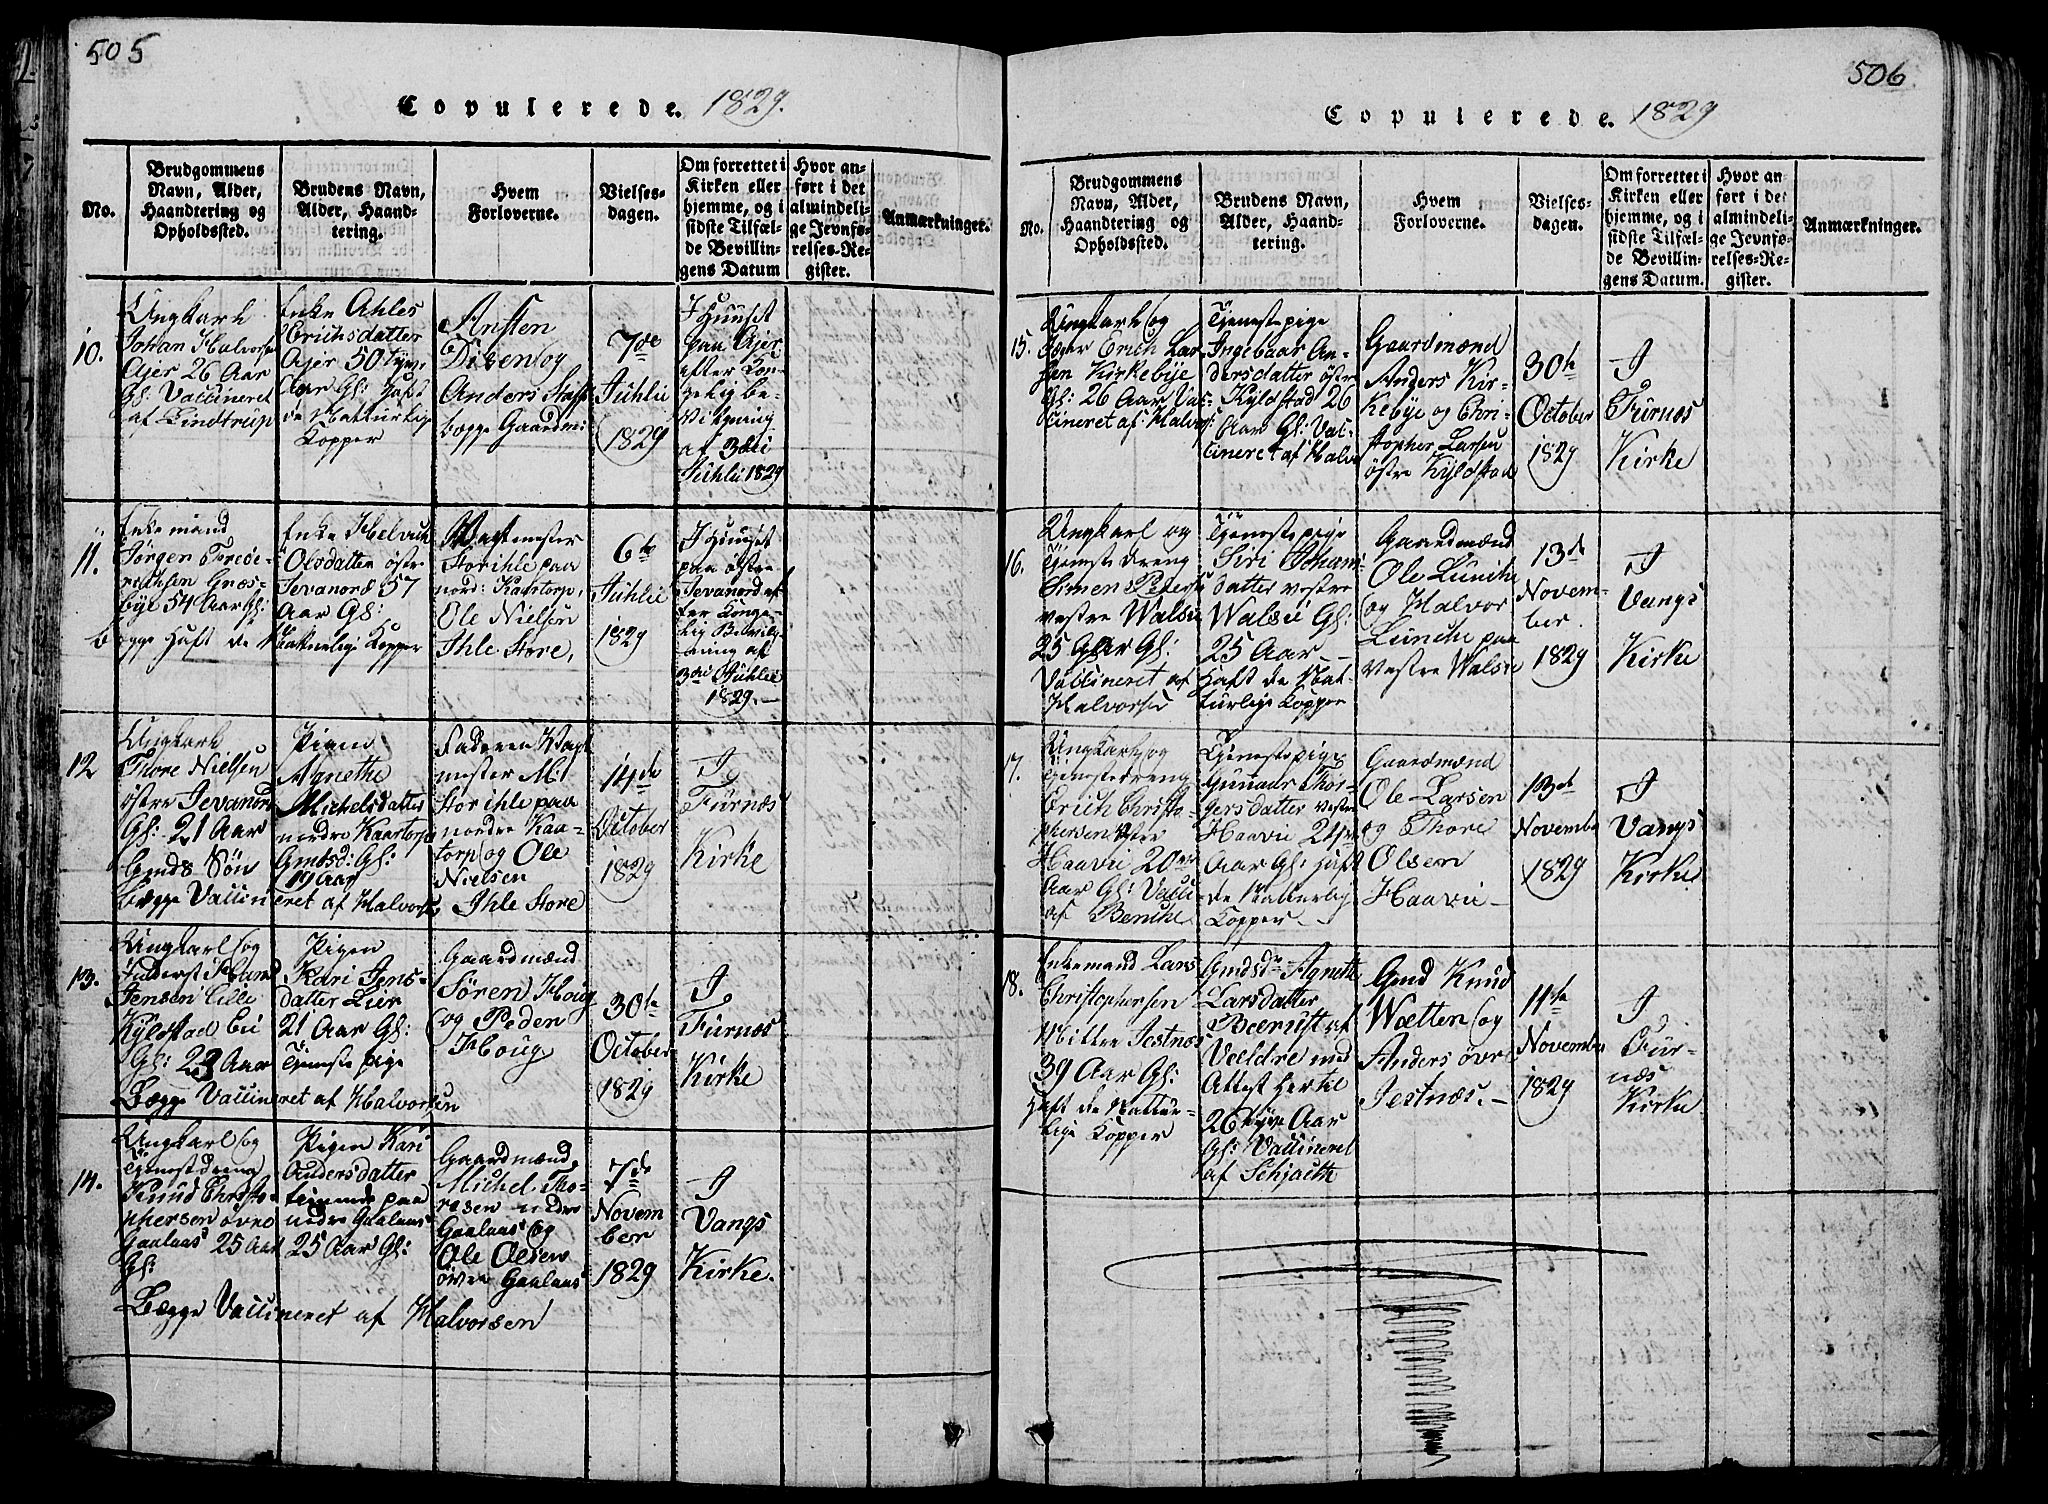 505
Copulerede. 1829.
No.
Brudgommens
Navn, Alder,
Haandtering og
Opholdssted.
Brudens Navn,
Alder, Haand-
tering.
Hvem
Forloverne.
Vielses-
dagen.
Om forrettet i
Kirken eller
hjemme, og i
sidste Tilfæl-
de Bevillin-
gens Datum
Hvor an-
ført i det
almindeli-
ge Jevnfø-
relses-Re-
gister.
Anmærkninger.
10.
Ungkarl
Johan Halvorsen
Ajer 26 Aar
Gl: Vaccineret
af Lindtrup
Enke Ahles
Erichsdatter
Ajer 50tyve
Aar Gl: Haft
de Natturlige
Kopper
Ansten
Disen og
Anders
begge Gaardm:
7de
Juhlii
1829
I Huuset
paa Ajer
efter Kon-
gelig be-
vilgning
af 3die
Juhlii 1829
11.
Enkemand
Jørgen Frede-
richsen Græs-
bye 54 Aar Gl:
Enke Helvich
Olsdatter østre
Jevanord 57
Aar Gl:
begge Haft de Natturlige Kopper
Vagtmester
Storihle paa
nord: Kaatorp,
Ole Nielsen
Ihle Store,
6te
Juhlii
1829
I Huuset
paa østre
Jevanord ef-
ter Konge-
lig Bevilg-
ning af
3die Juhlii
1829.
12
Ungkarl
Thore Nielsen
østre Jevanord
Gl: 21 Aar
Gmds Søn
Pigen
Agnethe
Michelsdatter
nordre Kaatorp
Gmdsd: Gl:
19 Aar
begge Vaccineret af Halvorsen
Faderen Vagt
mester M:
Storihle paa
nordre Kaa-
torp og Ole
Nielsen
Ihle Store
14de
October
1829
I
Furnæs
Kirke
13.
Ungkarl og
Jensen Lille
Kyldstad
Gl: 23 Aar
Pigen
Kari Jens-
datter Lier
21 Aar Gl:
Tjenste pige
Begge Vaccineret af Halvorsen
Gaardmænd
Søren Houg
og Peder
Houg
30te
October
1829
I
Furnæs
Kirke
14.
Ungkarl og
Tjenestdreng
Knud Christo-
phersen øvre
Gaalaas 25 Aar
Gl:
Pigen Kari
Andersdatter
tienende paa
nedre Gaalaas
25 Aar Gl:
Begge Vaccineret af Halvorsen
Gaardmænd
Michel Tho-
resen nedre
Gaalaas og
Ole Olsen
øvre Gaalaas
7de
Novem
ber
1829
I
Vangs
Kirke.
506
Copulerede. 1829
No.
Brudgommens
Navn, Alder,
Haandtering og
Opholdssted.
Brudens Navn,
Alder, Haand-
tering.
Hvem
Forloverne.
Vielses-
dagen.
Om forrettet i
Kirken eller
hjemme, og i
sidste Tilfæl-
de Bevillin-
gens Datum.
Hvor an-
ført i det
almindeli-
ge Jevnfø-
relses-Re-
gister.
Anmærkninger.
15.
Ungkarl og
Erich Lar-
sen Kirkebye
Gl: 26 Aar Vac-
cineret af Halvors:
Tjenestepige
Ingebaar An-
dersdatter østre
Kyldstad 26
Aar Gl: Vac-
cineret af Halv
Gaardmænd
Anders Kir-
kebye og Chri-
stopher Larsen
østre Kyldstad
30te
October
1829
I
Furnæs
Kirke
16.
Ungkarl og
Tjeneste dreng
Simen Pedersen
vestre Walsø
25 Aar Gl:
Vaccineret af
Halvorsen
Tjenestepige
Siri Johans-
datter vestre
Walsø Gl:
25 Aar
Haft de Nat-
turlige Kopper
Gaardmænd
Ole Lunche
og Halvor
Lunche paa
vestre Walsø
13de
Novem-
ber.
1829
I
Vangs
Kirke
17.
Ungkarl og
Tjenestedreng
Erich Christo-
phersen vestre
Haavii 20
Aar Gl: Vacci
af Benche
Tjenestepige
Gunnor Thor-
gersdatter vestre
Haavii 24re
Aar Gl: Haft
de Natturlig
Kopper
Gaardmænd
Ole Larsen
og Thore
Olsen
Haavii
13de
November
1829
I
Vangs
Kirke
18.
Enkemand Lars
Christophersen
Mittre Jestnæs
39 Aar Gl:
Haft de Nattur-
lige Kopper
Gmdsdr Agnethe
Larsdatter
Bærust af
Veldre med
Attest Hertil
26tyve Aar
Gl: Vaccineret
af Schjøtth
Gmd Knud
Wætten og
Anders øvre
Jestnæs.
11te
November
1829
I
Fur-
næs
Kirke